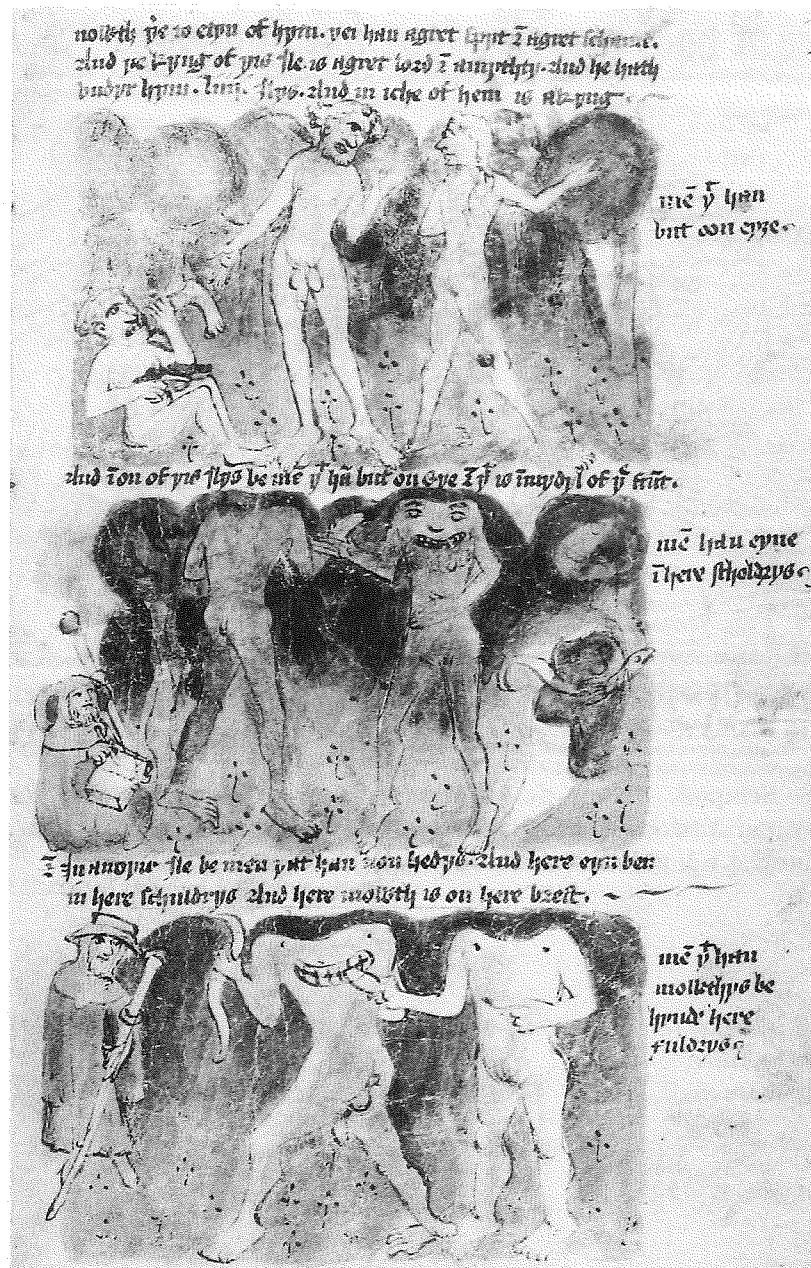 of hym. yei han agret spyt ⁊ agret schame.
And ye kyng of yis Ile is agret lord ⁊ amythty. And he hath
vndyr hym. Ilys. And in iche of hem is akyng
mē yͭ han
but oon eyȝe
And ī on of yis Ilys be mē yͭ hā but on eye ⁊ yͭ is ī myddyl of yͤ frūt.
mē han eyne
ī here scholdrys
⁊ In anoyir Ile be men yat han non hedys. And here eyn ben
in here schuldrys And here mowth is on here brest.
mē yͭ han
mowthys be
hynde here